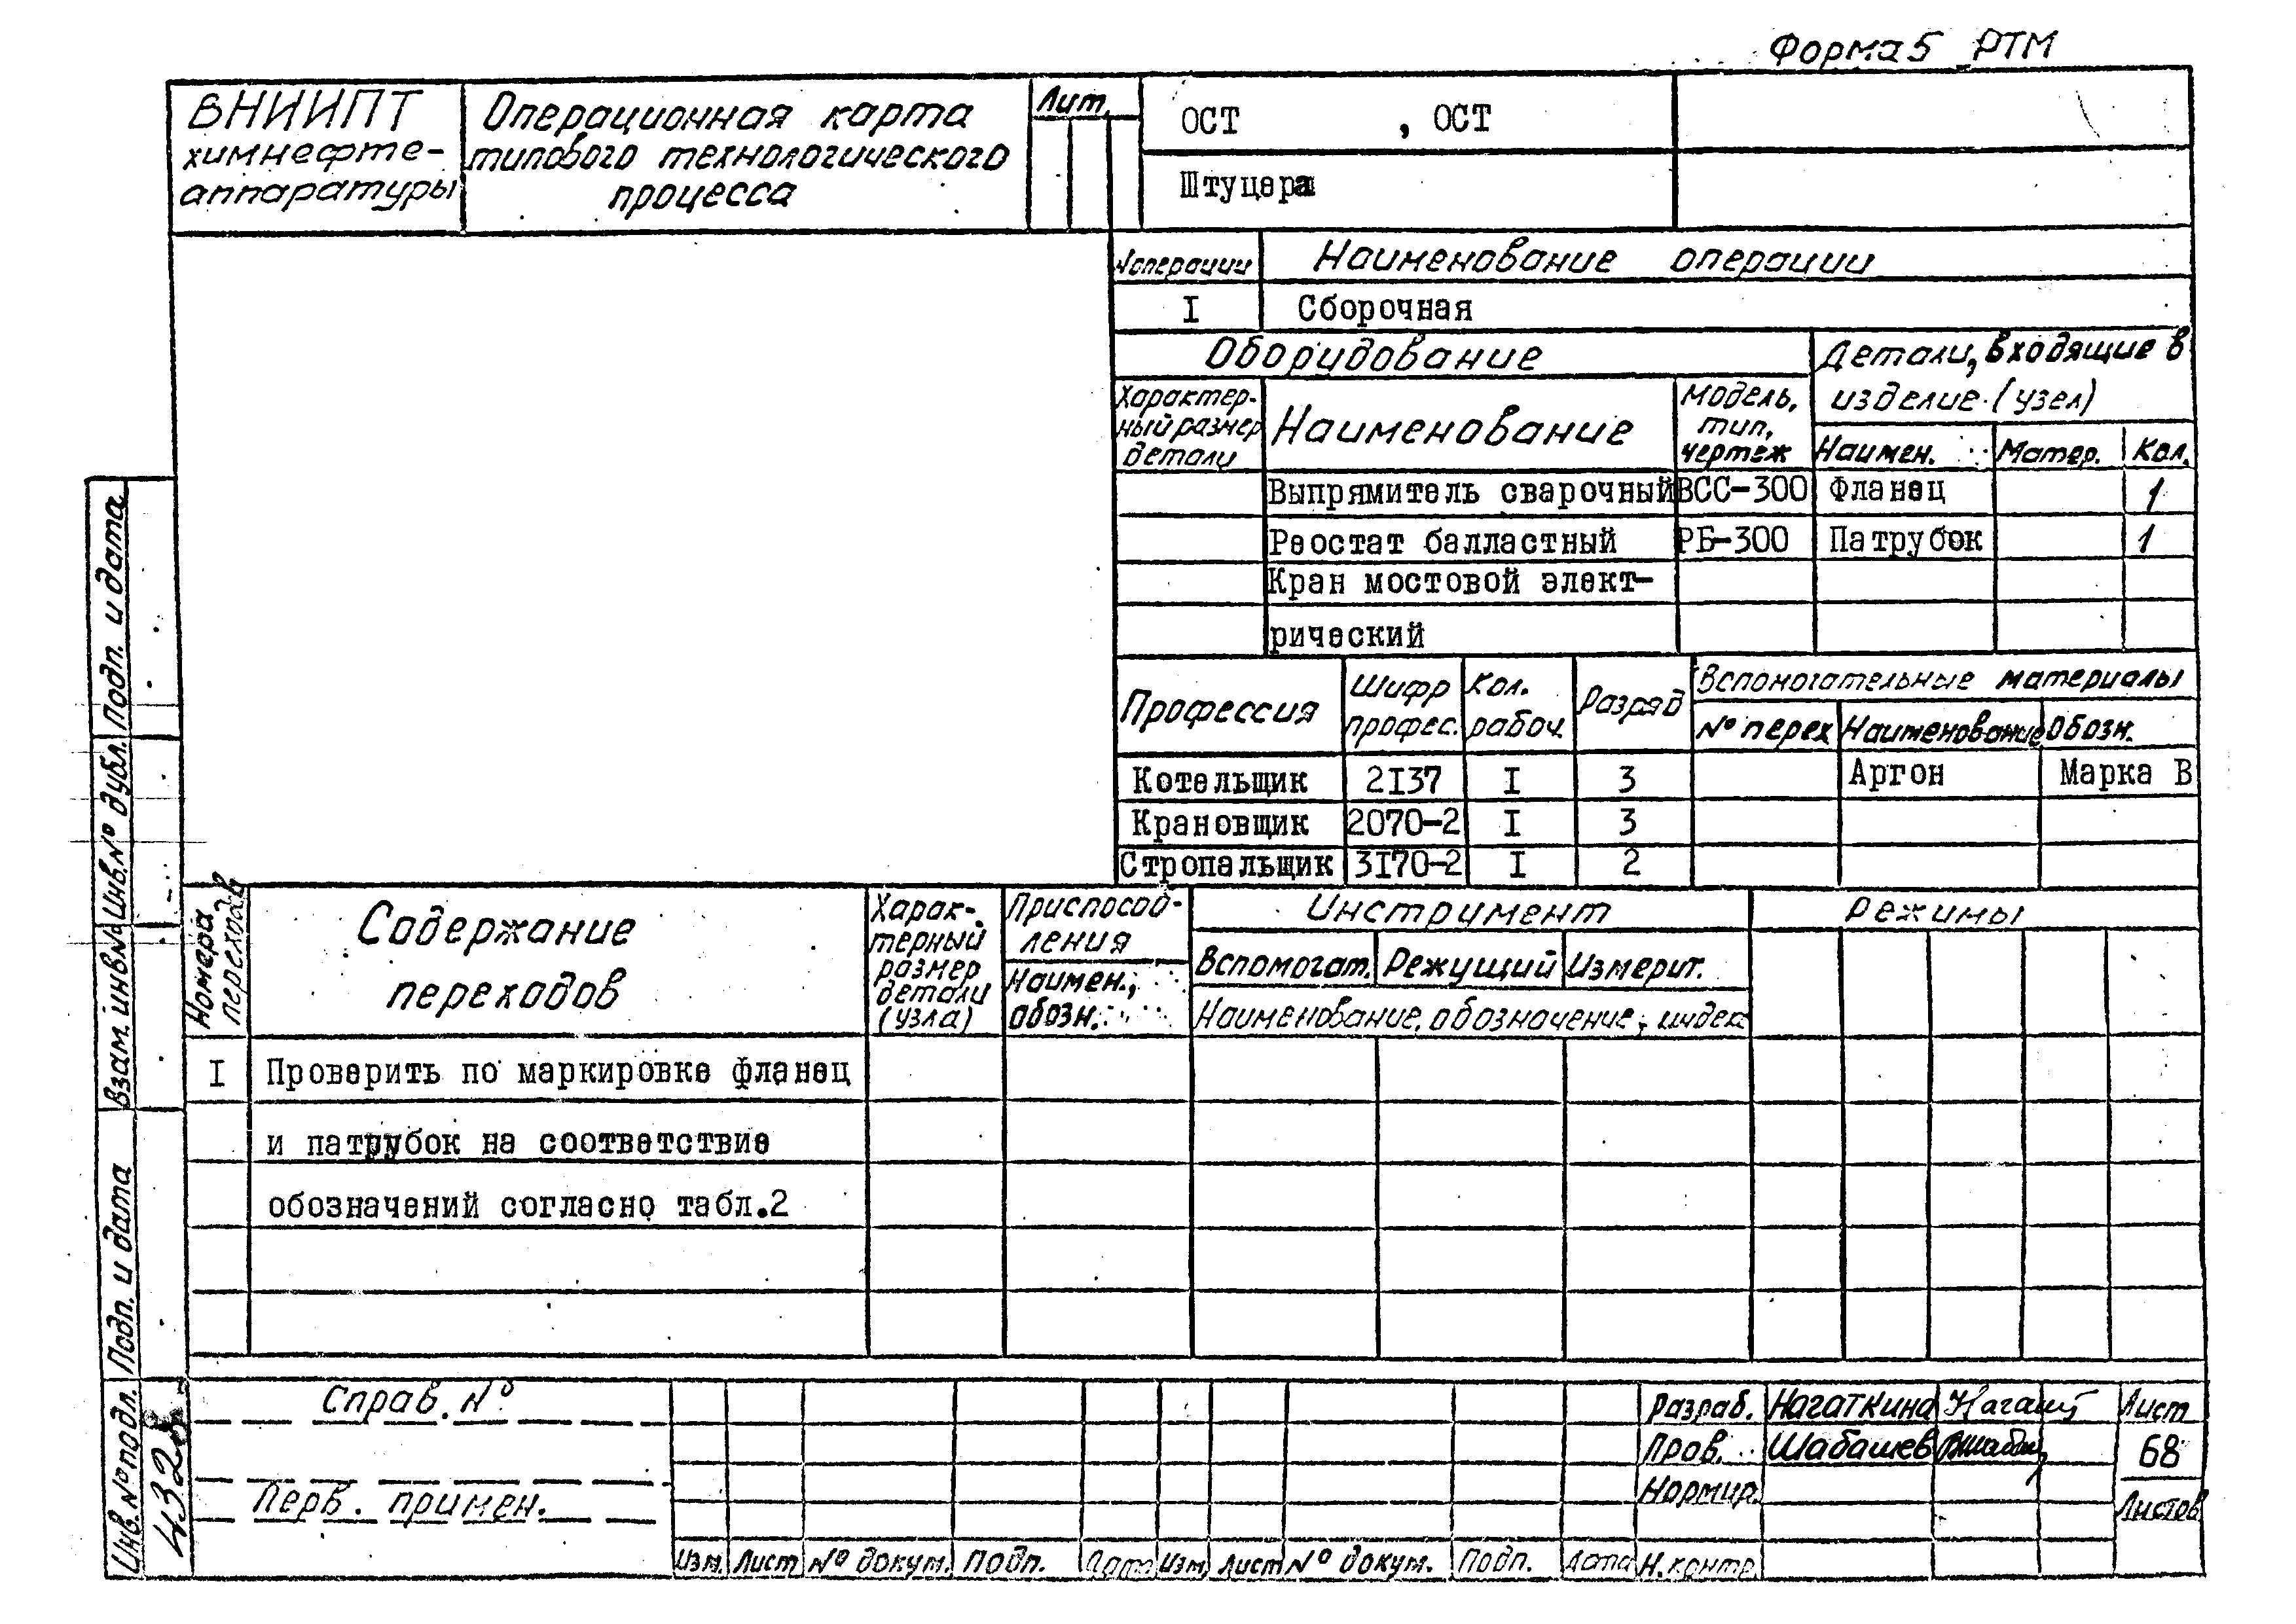 Форма 5 РТМ
ВНИИПТ
химнефте-
аппаратуры
Операционная карта
типового технологического
процесса
Лит.
ОСТ , ОСТ
Штуцера
№ операции Наименование операции
I Сборочная
Оборудование
Детали, входящие в
изделие (узел)
Характер-
ный размер
детали
Наименование
Модель,
тип,
чертеж
Наимен. Матер. Кол.
Выпрямитель сварочный ВСС-300 Фланец 1
Реостат балластный РБ-300 Патрубок 1
Кран мостовой элект-
рический
Профессия
Шифр
профес.
Кол.
рабоч.
Разряд
Вспомогательные материалы
№ перех Наименование Обозн.
Котельщик 2I37 I 3 Аргон Марка В
Крановщик 2070-2 I 3
Стропальщик 3I70-2 I 2
Номера
переходов
Содержание
переходов
Харак-
терный
размер
детали
(узла)
Приспособ-
ления
Наимен.,
обозн.
Инструмент
Вспомогат. Режущий Измерит.
Наименование, обозначение, индек
Режимы
I Проверить по маркировке фланец
и патрубок на соответствие
обозначений согласно табл.2
Подп. и дата
Инв. № дубл.
Взам. инв. №
Подп. и дата
Инв. № подл.
4328
Справ. №
Перв. примен.
Изм. Лист № докум. Подп. Дата Изм. Лист № докум. Подп. Дата
Разраб. Нагаткина
Пров. Шабашев
Нормир.
Н. контр.
Лист
68
Листов